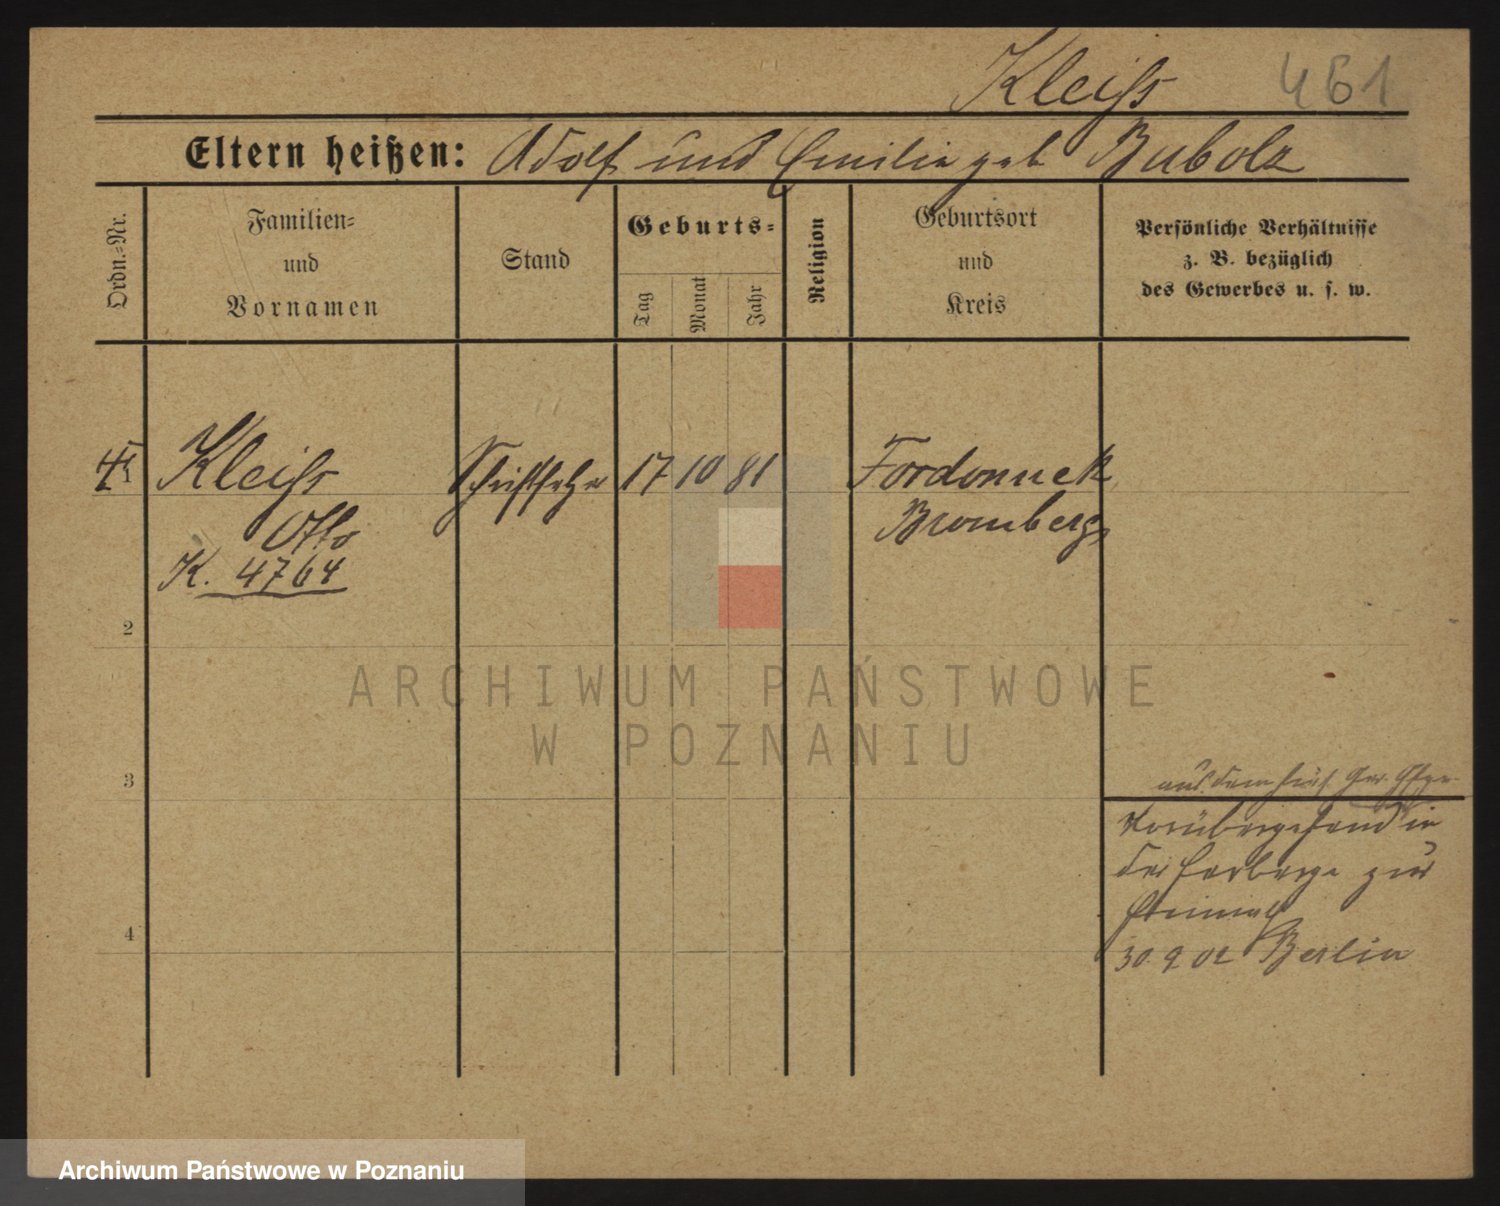 Kleiß 461
Eltern heißen: Adolf und Emilie geb Bubolz
Ordn.-Nr.
Familien-
und
Vornamen
Stand
Geburts-
Tag
Monat
Jahr
Religion
Geburtsort
und
Kreis
Persönliche Verhältnisse
z. B. bezüglich
des Gewerbes u. s. w.
Kleiß Schriftsetzer 17 10 81 Fordonnek
Otto Bromberg
K. 4764
2
3
4
aus dem
Vorübergehend in
der Herberge zur
Heimat
30 9 02 Berlin
ARCHIWUM PAŃSTWOWE
W POZNANIU
Archiwum Państwowe w Poznaniu